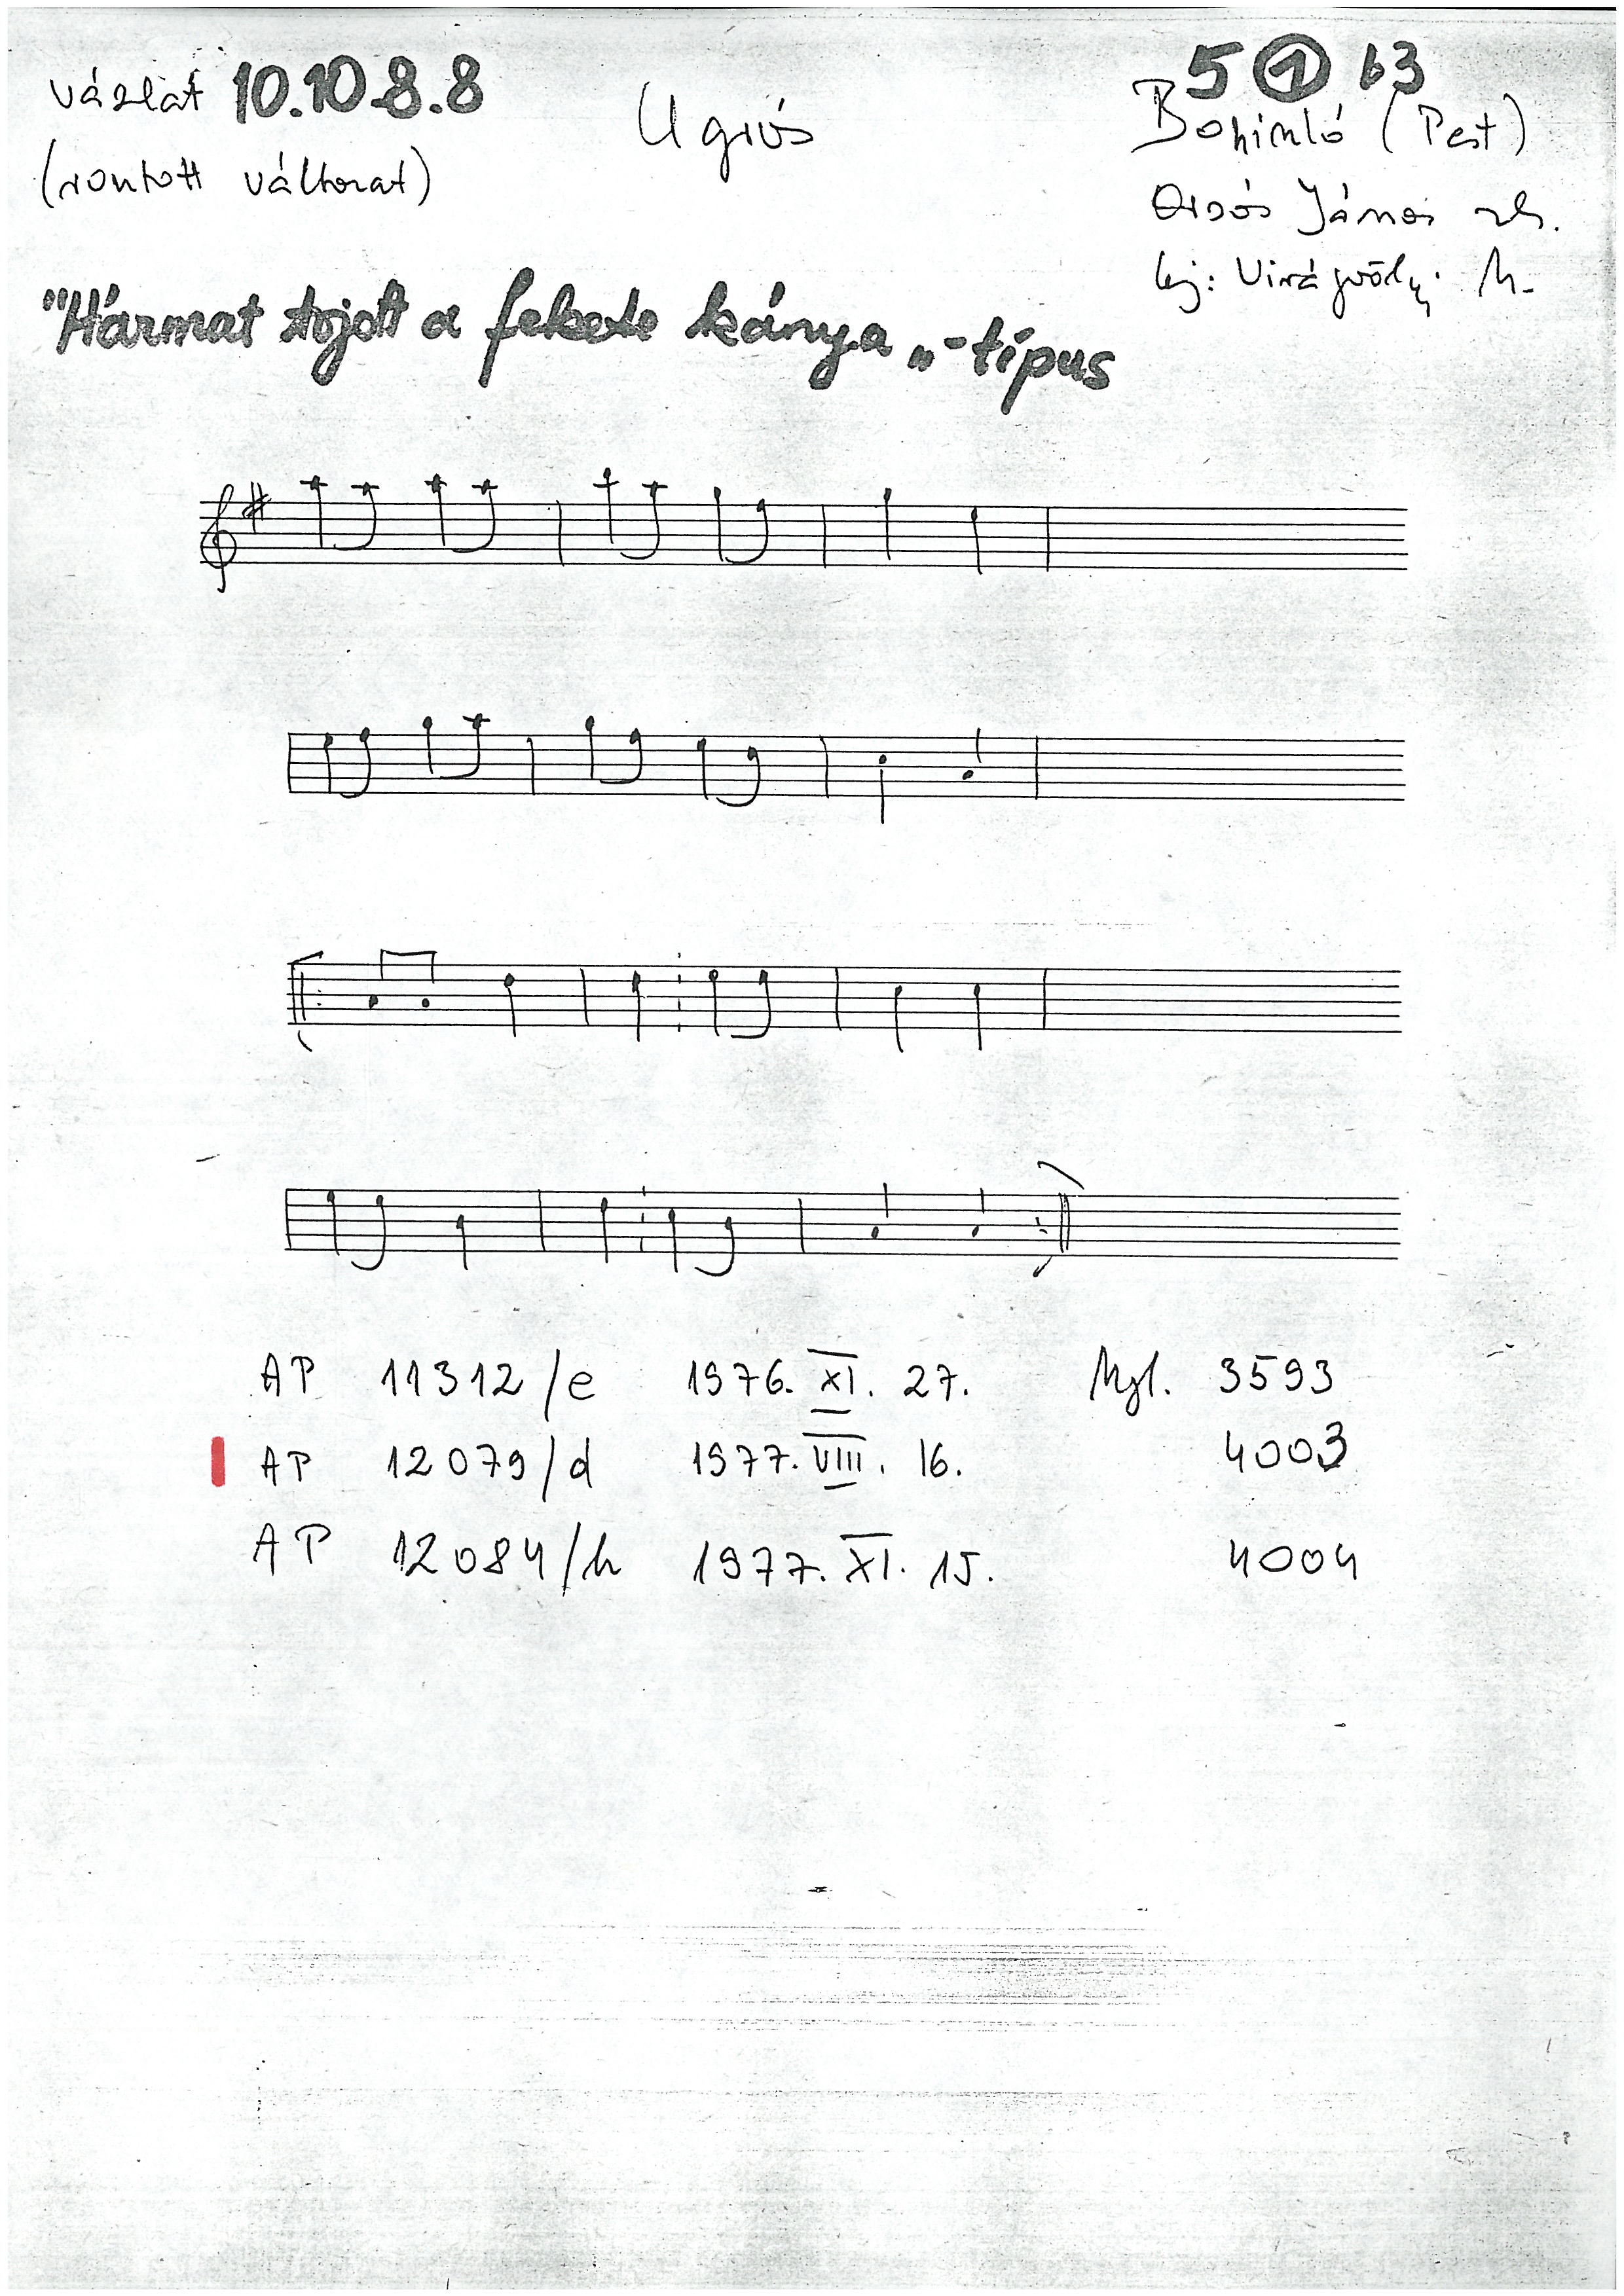 vázlat 10.10.8.8
Ugrós
5 ① b3
(rontott változat)
(Pest)
Orsós János
lej: Virágvölgyi M.
"Hármat tojott a fekete kánya„-típus
AP 11312/e 1976. XI. 27. Mgl. 3593
AP 12079/d 1977. VIII. 16. 4003
AP 12084/h 1977. XI. 15. 4004